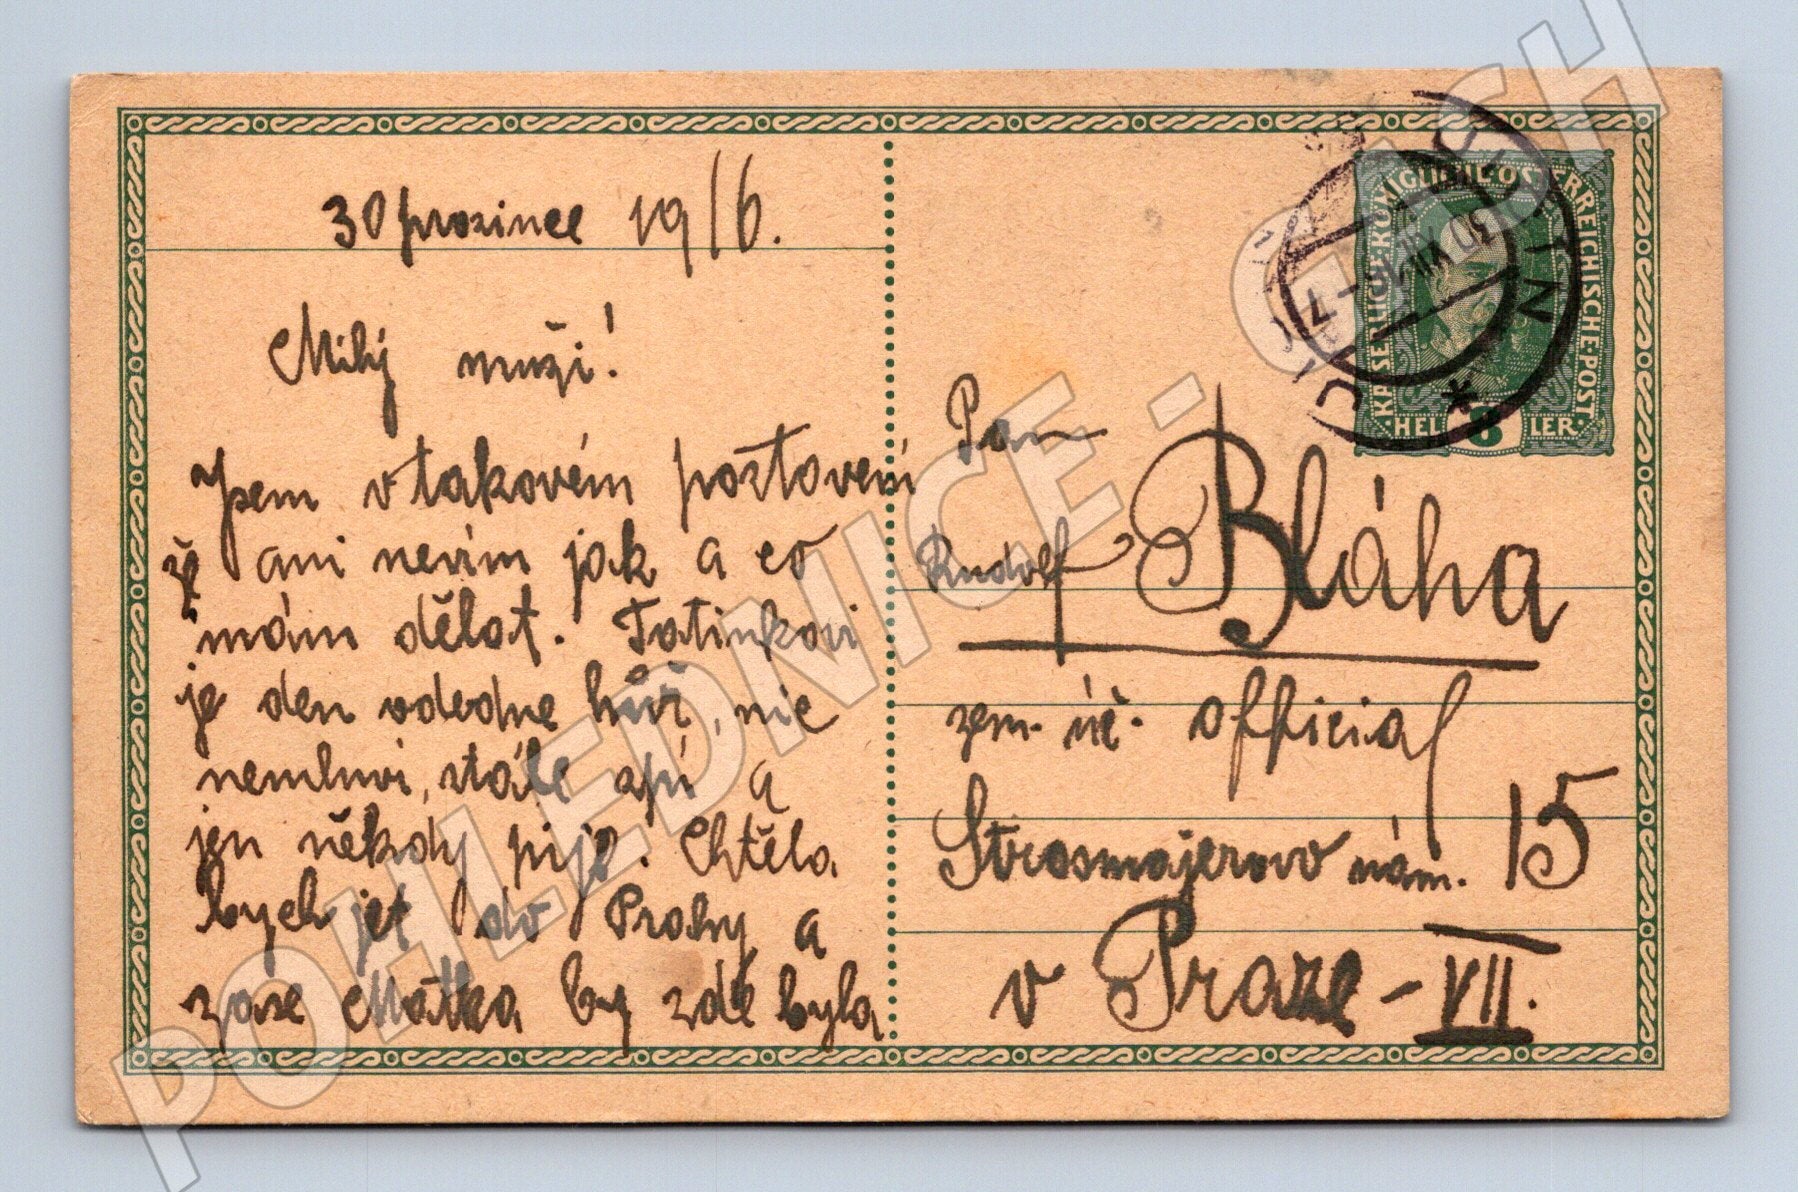 30 prosince 1916.
Milý muži!
Jsem v takovém postavení
že ani nevím jak a co
mám dělat. Tatínkovi
je den odedne hůř, nic
nemluví, stále spí a
jen někdy pije. Chtěla
bych jet do Prahy a
zase Matka by zde byla
Pan
Rudolf Bláha
zem. úč. official
Strosmajerovo nám. 15
v Praze - VII.
KAISERLICHE KÖNIGLICHE ÖSTERREICHISCHE POST
HEL 8 LER
30 XII 16 - 7
POHLEDNICE - CZECH